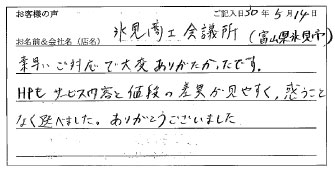 お客様の声 ご記入日30年5月14日
お名前&会社名(店名) 氷見商工会議所(富山県氷見市)
素早いご対応で大変ありがたかったです。
HPもサービス内容と価段の差異が見やすく、惑うこと
なく選べました。ありがとうございました